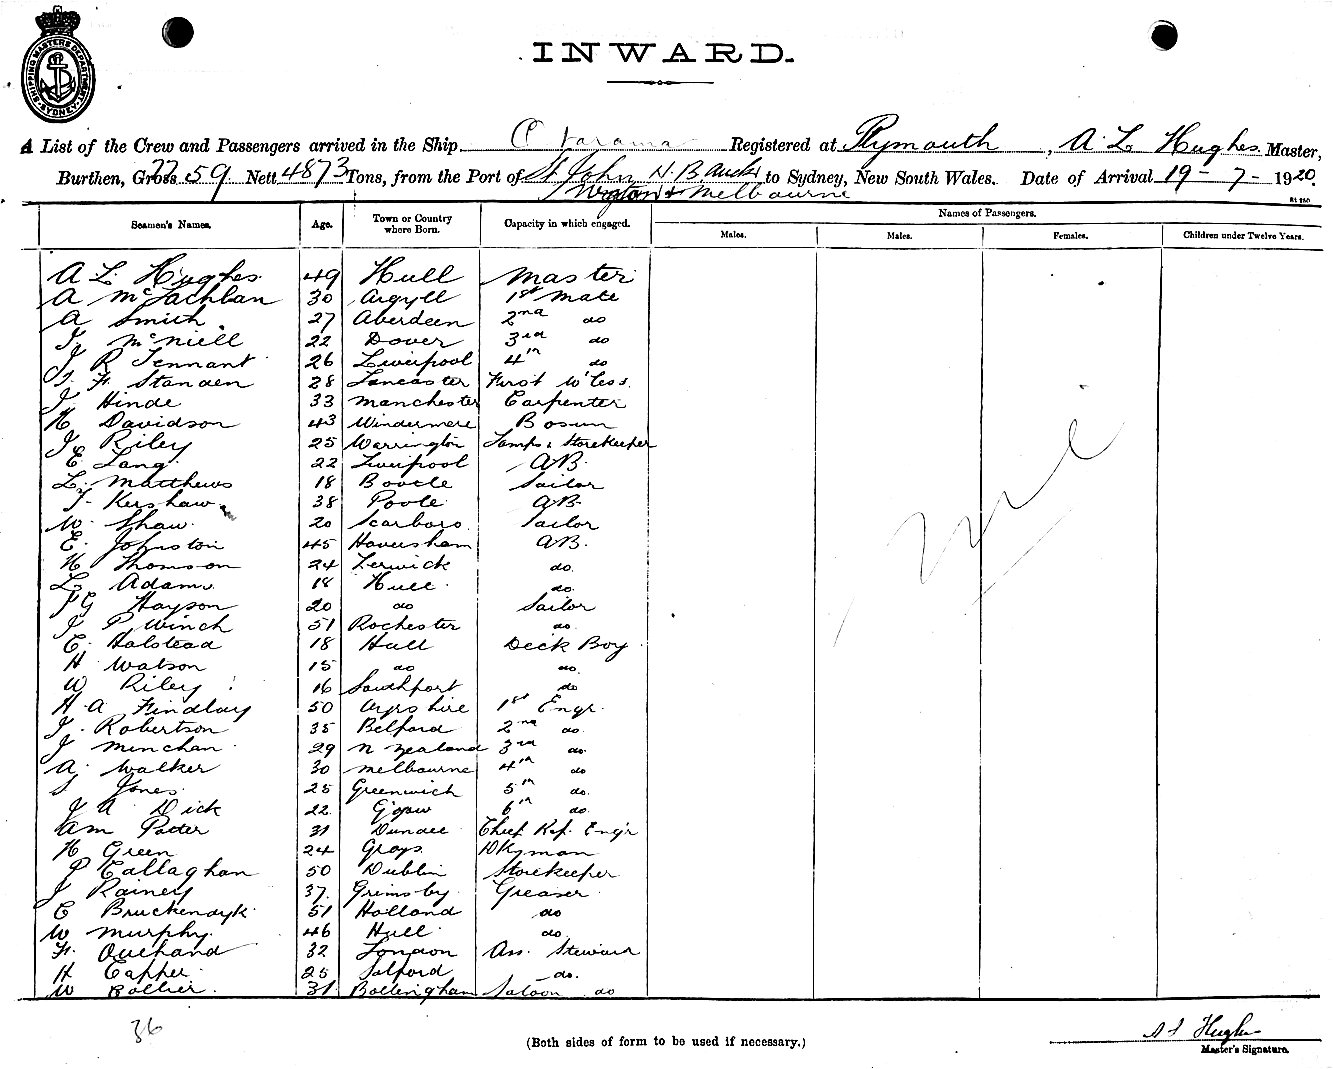 SHIPPING MASTERS DEPARTMENT SYDNEY
INWARD.
A List of the Crew and Passengers arrived in the Ship Otarama Registered at Plymouth, A L Hughes Master,
Burthen, Gross 59 Nett 4873 Tons, from the Port of St John N.B. Auckl to Sydney, New South Wales. Date of Arrival 19-7-1920.
Wgton & Melbourne
Seamen's Names. Age. Town or Country where Born. Capacity in which engaged. Names of Passengers.
Males. Males. Females. Children under Twelve Years.
A L Hughes 49 Hull Master
A McLachlan 30 Argyll 1st Mate
A Smith 27 Aberdeen 2nd do
J. McNeill 22 Dover 3rd do
J R Tennant 26 Liverpool 4th do
F. Standen 28 Lancaster First W'less.
J. Hinde 33 Manchester Carpenter
H Davidson 43 Windermere Bosun
J Riley 25 Warrington Lamps & Storekeeper
E Lang 22 Liverpool AB.
L. Matthews 18 Bootle Sailor
T. Kershaw 38 Poole AB.
W. Shaw 20 Scarboro Sailor
E. Johnston 45 Haversham AB.
H Thomson 24 Lerwick do.
L. Adams 18 Hull do.
G Hayson 20 do Sailor
J P Winch 51 Rochester do.
E. Halstead 18 Hull Deck Boy
H Watson 15 do do.
W Riley 16 Southport do
H. A Findlay 50 Ayrshire 1st Engr.
J. Robertson 35 Belford 2nd do.
J Minchan 29 N Zealand 3rd do.
A. Walker 30 Melbourne 4th do
S Jones. 25 Greenwich 5th do.
J A Dick 22 G'gow 6th do.
Wm Potter 31 Dundee Chief Ref. Eng'r
H Green 24 Grays DKyman
P Callaghan 50 Dublin Storekeeper
J Rainey 37. Grimsby Greaser
C Bruckendyk 51 Holland do
W Murphy. 46 Hull do.
F. 32 London Ass. Steward
H Capper 25 Salford do.
W 31 Bollingham Saloon do
nil
36
(Both sides of form to be used if necessary.)
A L Hughes
Master's Signature.